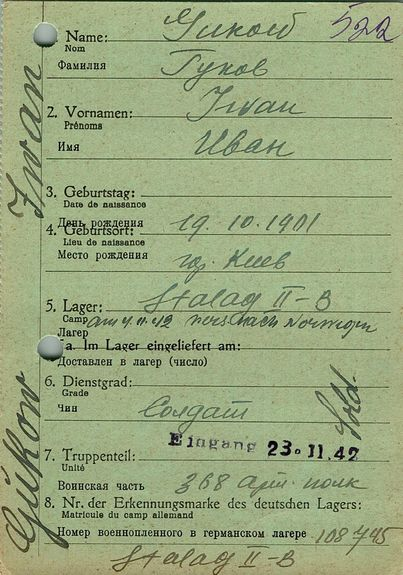 522
1. Name: Gukow
Nom
Фамилия Гуков
2. Vornamen: Iwan
Prénoms
Имя Иван
3. Geburtstag:
Date de naissance
День рождения 19. 10. 1901
4. Geburtsort:
Lieu de naissance
Место рождения гор. Киев
5. Lager: Stalag II-B
Camp am 4.11.42 vers. nach Norwegen
Лагер
5a. Im Lager eingeliefert am:
Доставлен в лагер (число)
6. Dienstgrad:
Grade
Чин Солдат
Sold.
Eingang 23. 11. 42
7. Truppenteil:
Unité
Воинская часть 368 арт. полк
8. Nr. der Erkennungsmarke des deutschen Lagers:
Matricule du camp allemand
Номер военнопленного в германском лагере 108 745
Stalag II-B
Gukow Iwan